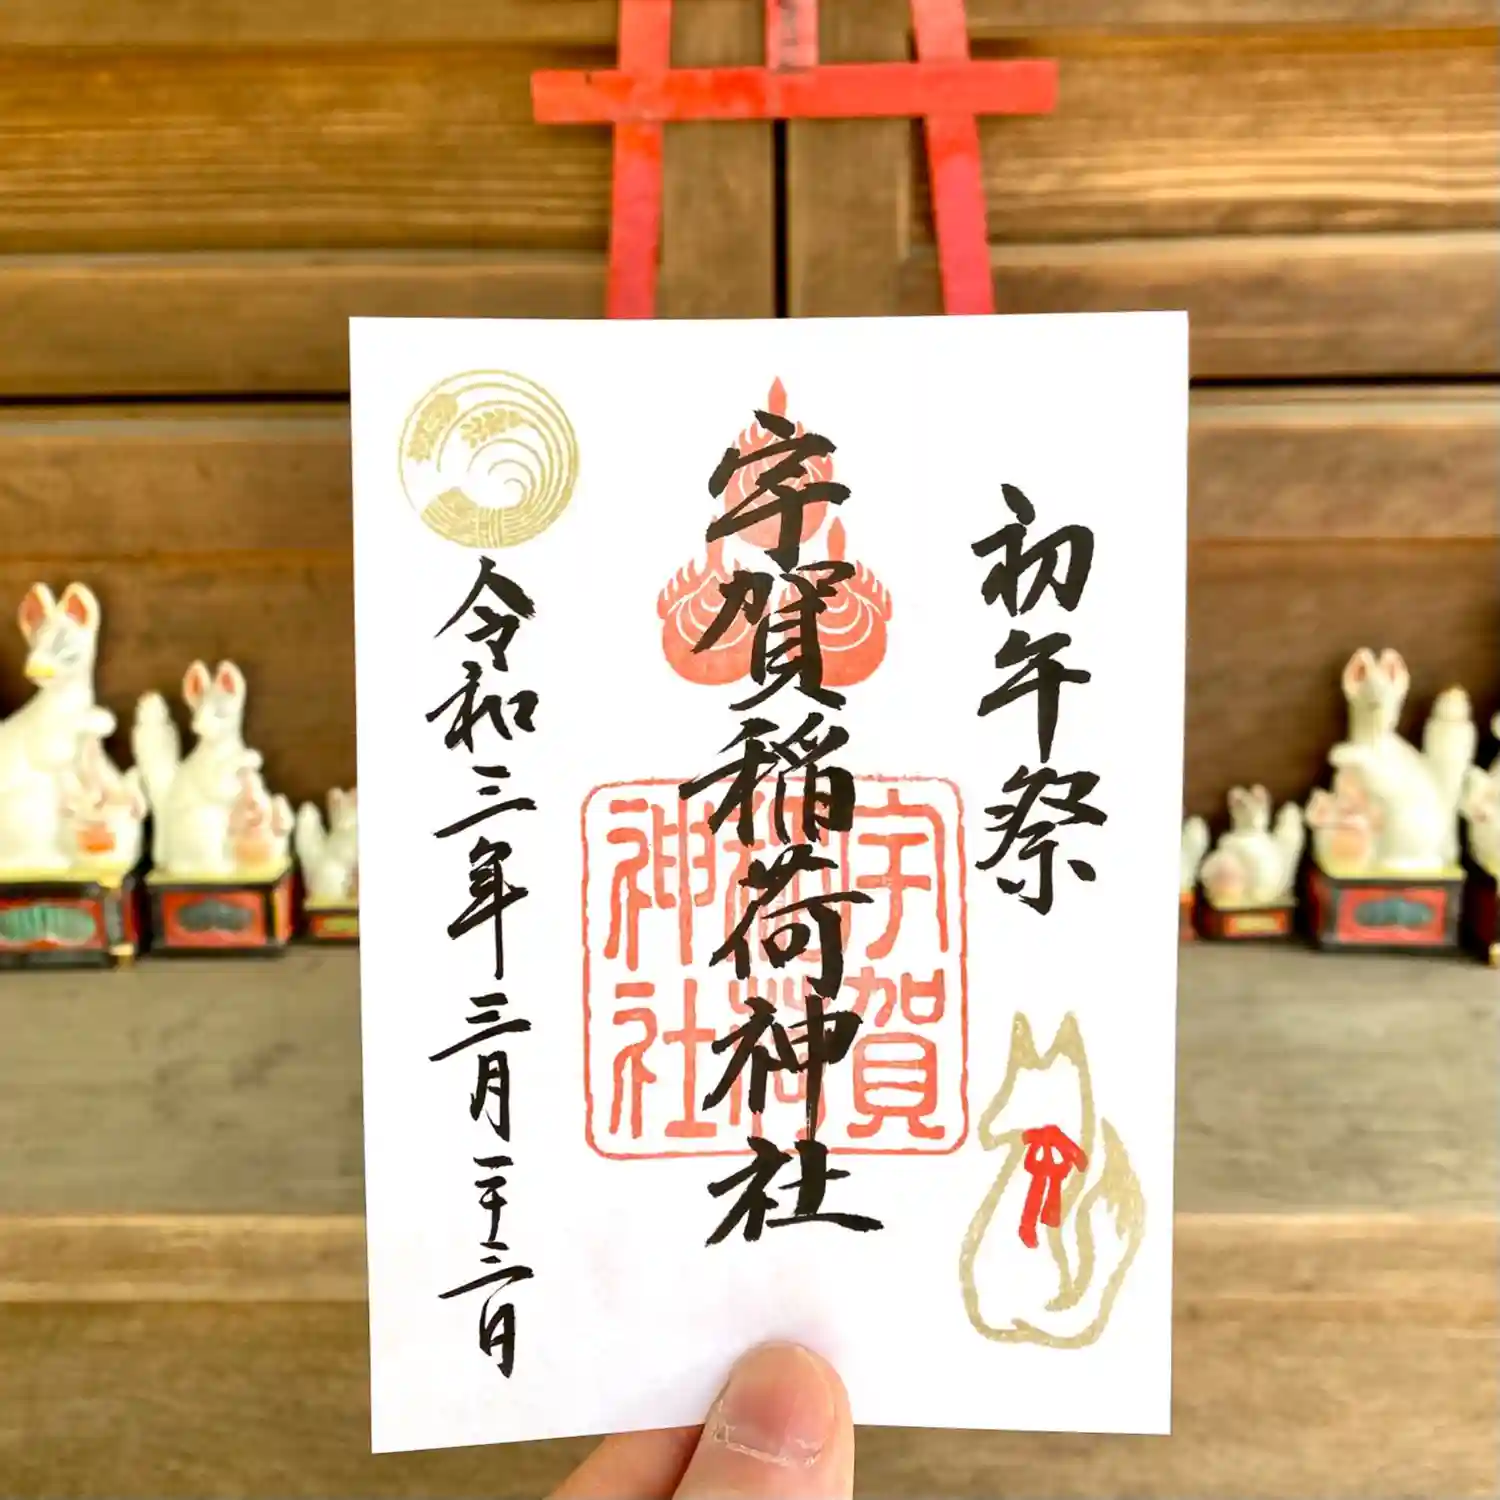 初午祭
宇賀稲荷神社
宇賀
稲荷
神社
令和三年三月二十三日